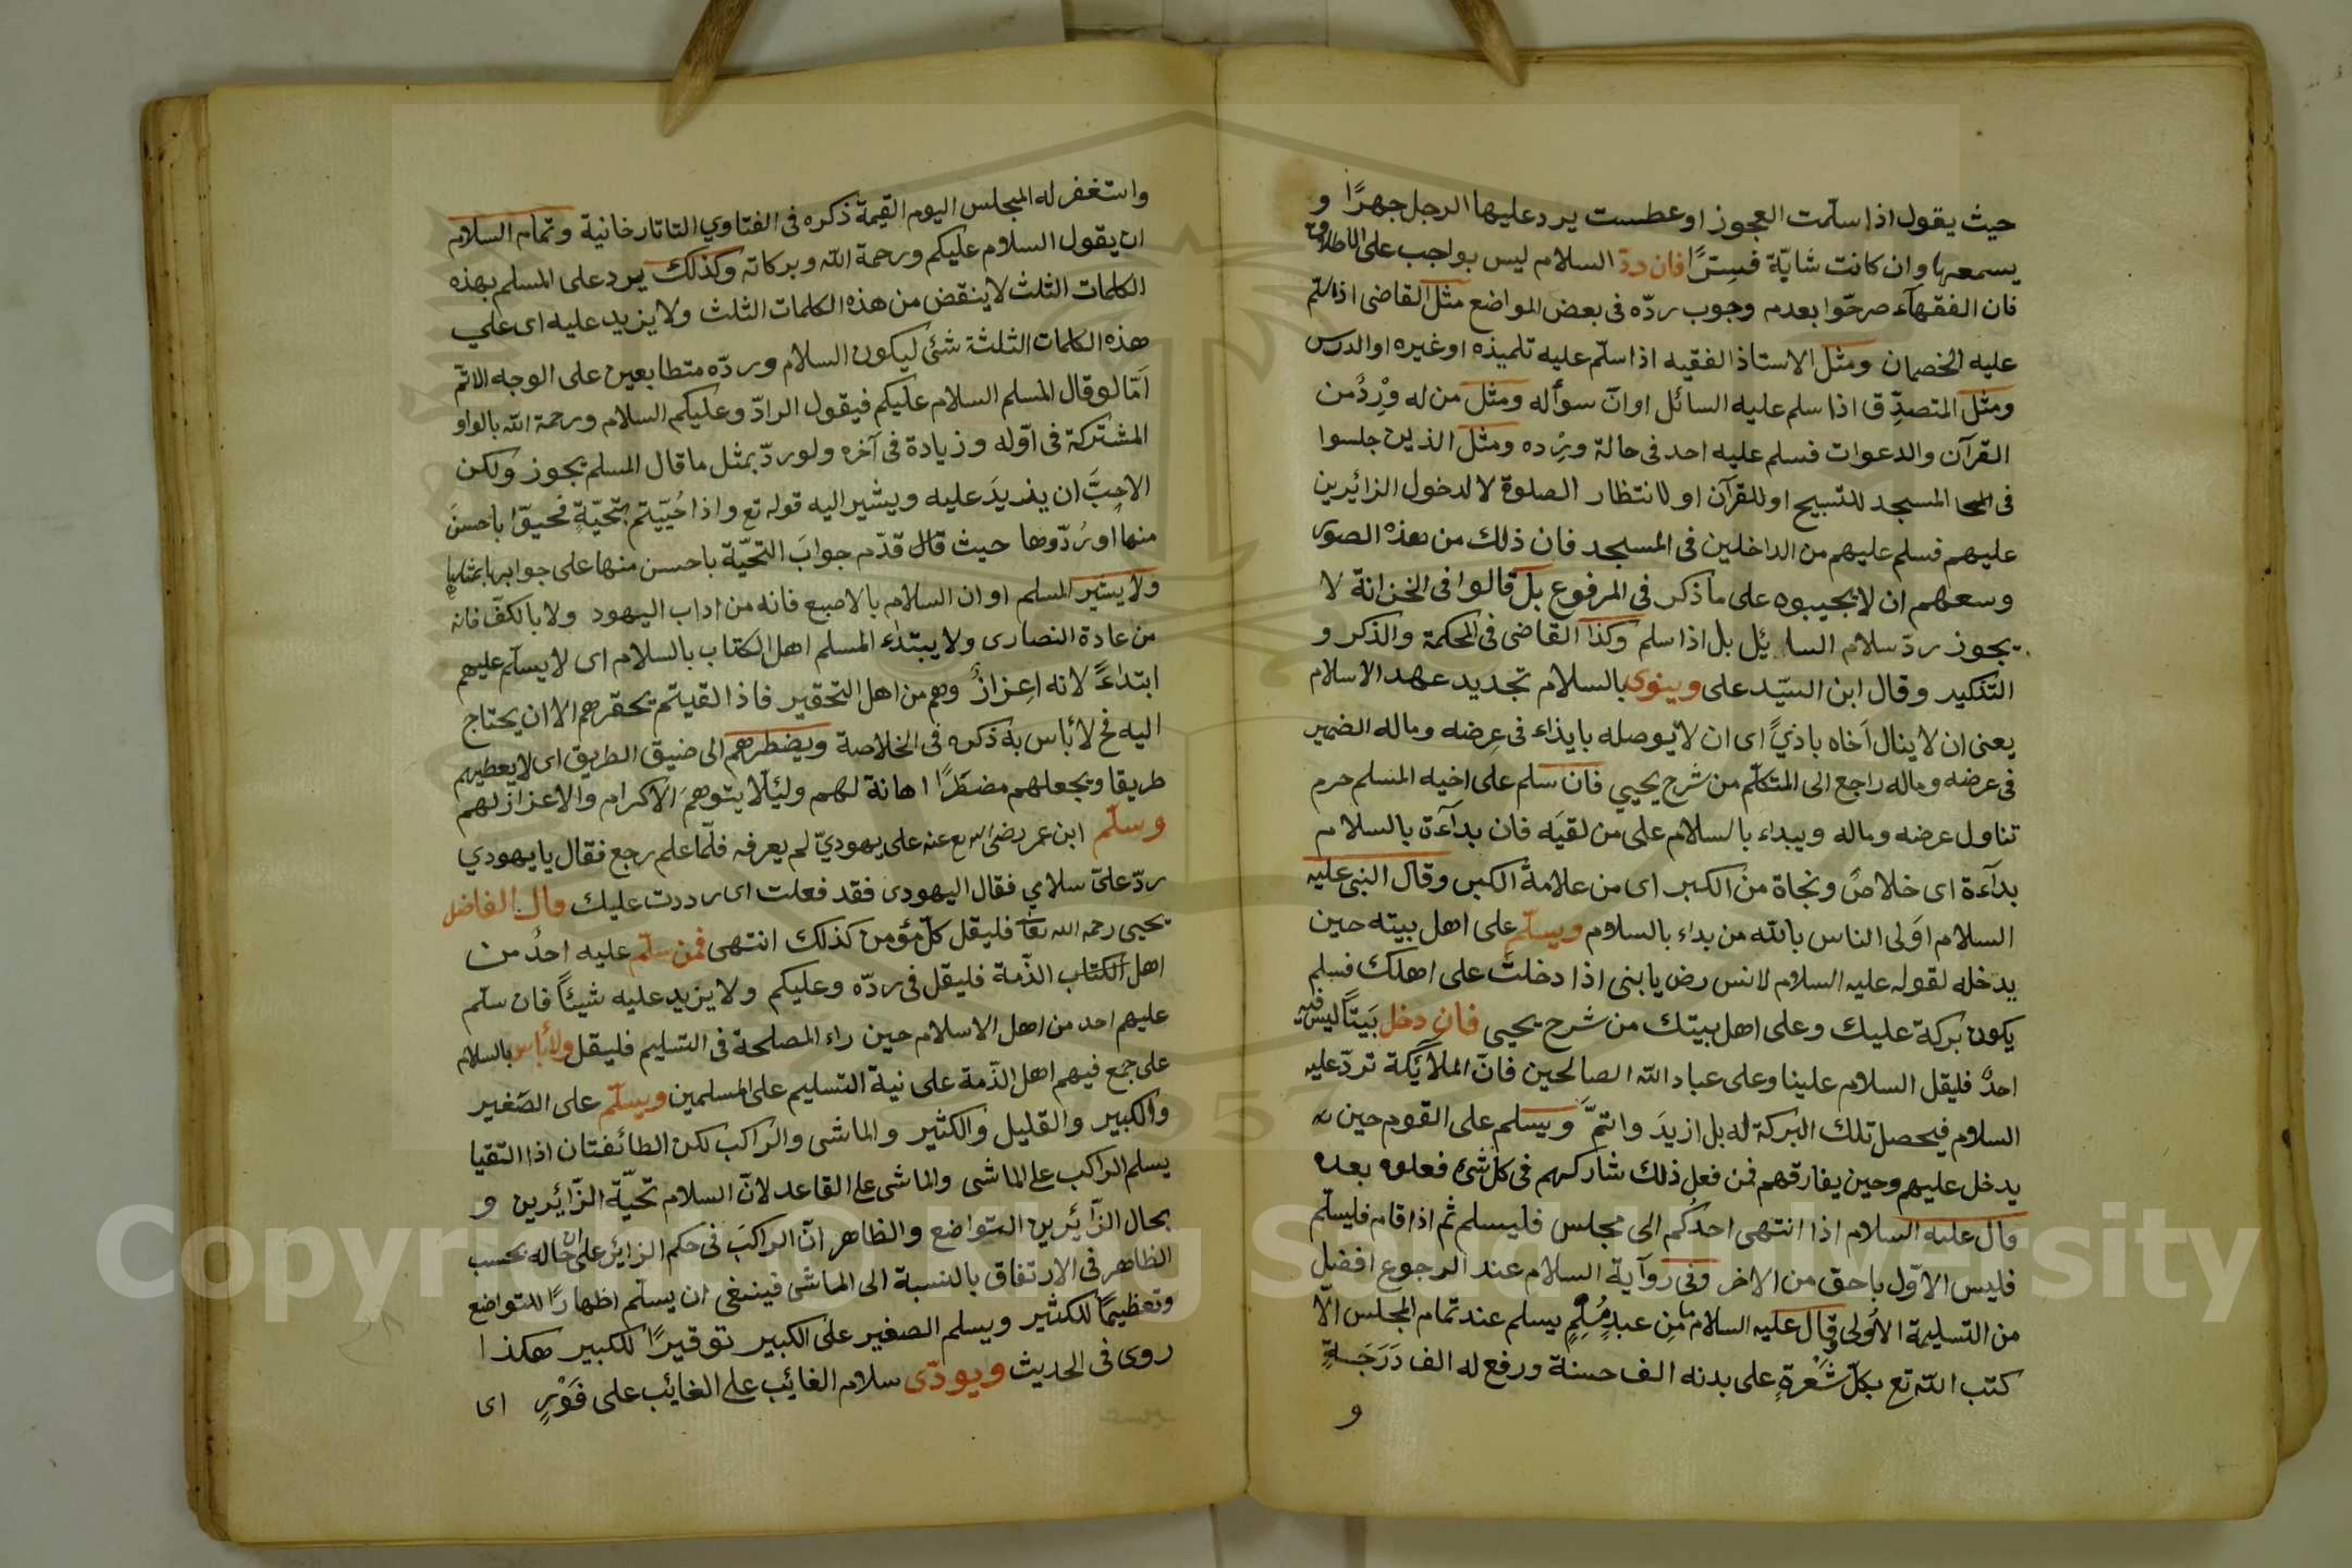 حيث يقول اذا سلّمت العجوز او عطست يرد عليها الرجل جهرًا و
يسمعها وان كانت شابّة فسِرًّا فان ردّ السلام ليس بواجب على الاطلاق
فان الفقهآء صرحّوا بعدم وجوب ردّه فى بعض المواضع مثل القاضى اذا سلّم
عليه الخصمان ومثل الاستاذ الفقيه اذا سلّم عليه تلميذه او غيره او الدرس
ومثل المتصدِّق اذا سلم عليه السائل اوانّ سوأله ومثل من له وِرْدٌ من
القرآن والدعوات فسلم عليه احد فى حالة وِرْده ومثل الذين جلسوا
فى المسجد للتسبيح او للقرآن او لانتظار الصلوة لا لدخول الزائرين
عليهم فسلم عليهم من الداخلين فى المسجد فان ذلك من هذه الصور
وسعهم ان لا يجيبوه على ما ذكر فى المرفوع بل قالوا فى الخزانة لا
يجوز ردّ سلام السائيل بل اذا سلم وكذا القاضى فى المحكمة والذكر و
التذكير وقال ابن السيّد على وينوى بالسلام تجديد عهد الاسلام
يعنى ان لا ينال اَخاه باذيً اى ان لا يوصله بايذاء فى عِرضه وماله الضمير
فى عرضه وماله راجع الى المتكلّم من شرح يحيي فان سلم على اخيه المسلم حرم
تناول عرضه وماله ويبداء بالسلام على من لقيَه فان بدآءة بالسلام
بدآءة اى خلاصٌ ونجاة من الكبر اى من علامة الكبر وقال النبى عليه
السلام اَولى الناس بالله من بداء بالسلام ويسلّم على اهل بيته حين
يدخله لقوله عليه السلام لانس رض يا بنى اذا دخلت على اهلك فسلم
يكون بركة عليك وعلى اهل بيتك من شرح يحيى فان دخل بَيتًا ليس فيه
احدٌ فليقل السلام علينا وعلى عباد الله الصالحين فانّ الملآئكة تردّ عليه
السلام فيحصل تلك البركة له بل ازيدَ واتمَّ ويسلم على القوم حين
يدخل عليهم وحين يفارقهم فمن فعل ذلك شاركهم فى كل شئ فعلوه بعده
قال عليه السلام اذا انتهى احدُكم الى مجلس فليسلم ثم اذا قام فليسلّم
فليس الاوّل باحق من الاخر وفى روآية السلام عند الرجوع افضل
من التسليمة الاُولى وقال عليه السلام ما مِن عبدٍ مُسْلِمٍ يسلم عند تمام المجلس الّا
كتب الله تع بكلّ شَعْرةٍ على بدنه الف حسنة ورفع له الف دَرَجَةٍ
و
واستغفر له المجلس اليوم القيمة ذكره فى الفتاوي التاتارخانية وتمام السلام
ان يقول السلام عليكم ورحمة الله وبركاته وكذلك يرد على المسلم بهذه
الكلمات الثلث لا ينقض من هذه الكلمات الثلث ولا يزيد عليه اى علي
هذه الكلمات الثلثة شئ ليكون السلام وردّه متطابعين على الوجه الاتمّ
اَمّا لو قال المسلم السلام عليكم فيقول الرادّ وعليكم السلام ورحمة الله بالواو
المشتركة فى اوّله وزيادة فى آخره ولو ردّ بمثل ما قال المسلم يجوز ولكن
الاحبّ ان يزيدَ عليه ويشير اليه قوله تع واذا حُيّيتم بتحيّةٍ فحيّوا باحسنَ
منها او رُدّوها حيث قال قدّم جوابَ التحيّة باحسن منها على جوابها بمثلها
ولا يشير المسلم او ان السلام بالاصبع فانه من اداب اليهود ولا بالكفّ فانه
من عادة النصارى ولا يبتداء المسلم اهل الكتاب بالسلام اى لا يسلّم عليهم
ابتداءً لانه اِعزازٌ وهم من اهل التحقير فاذا لقيتم يحقرهم الا ان يحتاج
اليه فح لا بأس به ذكره فى الخلاصة ويضطرهم الى ضيق الطريق اى لا يعطيهم
طريقا ويجعلهم مضطَرًّا اهانة لهم وليئلّا يتوهمَ الاكرام والاعزاز لهم
وسلّم ابن عمر رضى الله تع عنه على يهوديّ لم يعرفه فلّما علم رجع فقال يا يهودي
ردّ علىّ سلامي فقال اليهودى فقد فعلت اى رددت عليك قال الفاضل
يحيى رحمه الله تعا فليقل كلّ مؤمن كذلك انتهى فمن سلّم عليه احدٌ من
اهل الكتاب الذّمة فليقل فى ردّه وعليكم ولا يزيد عليه شيئًا فان سلّم
عليهم احد من اهل الاسلام حين راء المصلحة فى التسليم فليقل ولا بأس بالسلام
على جمع فيهم اهل الذّمة على نية التسليم على المسلمين ويسلّم على الصّغير
والكبير والقليل والكثير والماشى والراكب لكن الطائفتان اذا التقيا
يسلم الراكب على الماشى والماشى على القاعد لانّ السلام تحيّة الزّائرين و
بحال الزّائرين التواضع والظاهر انّ الراكبَ فى حكم الزائر على حاله بحسب
الظاهر فى الارتفاق بالنسبة الى الماشى فينبغى ان يسلّم اظهارًا للتواضع
وتعظيمًا للكثير ويسلم الصغير على الكبير توقيرًا للكبير هكذا
روى فى الحديث ويودّى سلام الغائب على الغائب على فَوْرٍ اى
Copyright © King Saud University
1957